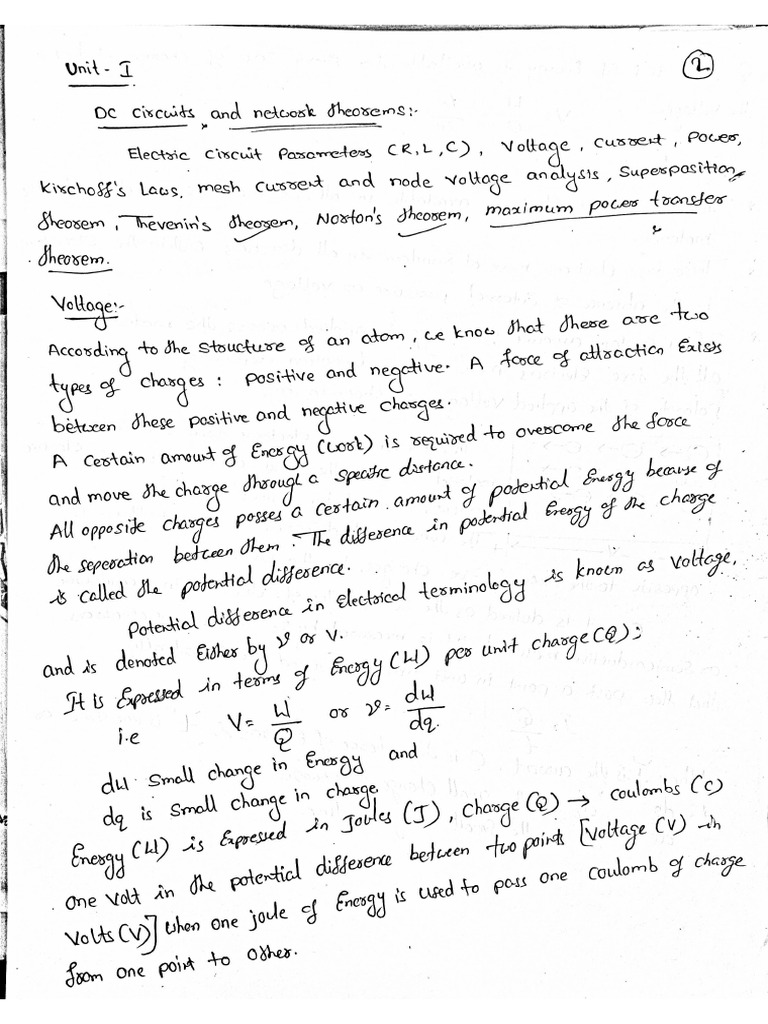 Unit - I
2
DC circuits and network theorems:-
Electric Circuit Parameters (R,L,C), Voltage, current, Power,
Kirchoff's Laws, mesh current and node voltage analysis, Superposition
theorem, Thevenin's theorem, Norton's theorem, maximum power transfer
theorem.
Voltage:-
According to the structure of an atom, we know that there are two
types of charges : positive and negative. A force of attraction Exists
between these positive and negative charges.
A certain amount of Energy (work) is required to overcome the force
and move the charge through a specific distance.
All opposite charges posses a certain amount of potential Energy because of
the seperation between them. The difference in potential Energy of the charge
is called the potential difference.
Potential difference in Electrical terminology is known as voltage,
and is denoted Either by v or V.
It is Expressed in terms of Energy (W) per unit charge (Q):
i.e V = W/Q or v = dw/dq.
dw small change in Energy and
dq is small change in charge.
Energy (W) is Expressed in Joules (J), Charge (Q) → coulombs (C)
one volt in the potential difference between two points [voltage (V) in
Volts (V)] when one joule of Energy is used to pass one coulomb of charge
from one point to other.